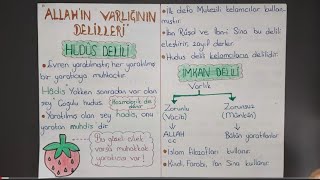 ALLAH'IN VARLIĞININ
DELİLLERİ
HUDÛS DELİLİ
• Evren yaratılmıştır, her yaratılmış
bir yaratıcıya muhtaçtır.
Hâdis: Yokken sonradan var olan
şey. Çoğulu hudûs
• Yaratılmış olan şey hadis, onu
yaratan muhdis dir.
Bu güzel çilek
varsa muhakkak
yaratıcısı var!
• İlk defa Mutezili kelamcılar kullan-
mıştır.
• İbn Rüşd ve İbn-i Sina bu delili
eleştirir, zayıf derler.
• Hudus delili kelamcıların delilidir.
İMKAN DELİLİ
Varlık
Zorunlu
(Vacib)
ALLAH
cc
Zorunsuz
(Mümkün)
Bütün yaratılanlar
• İslam filozofları kullanır.
• Kindi, Farabi, İbn Sina kullanır.